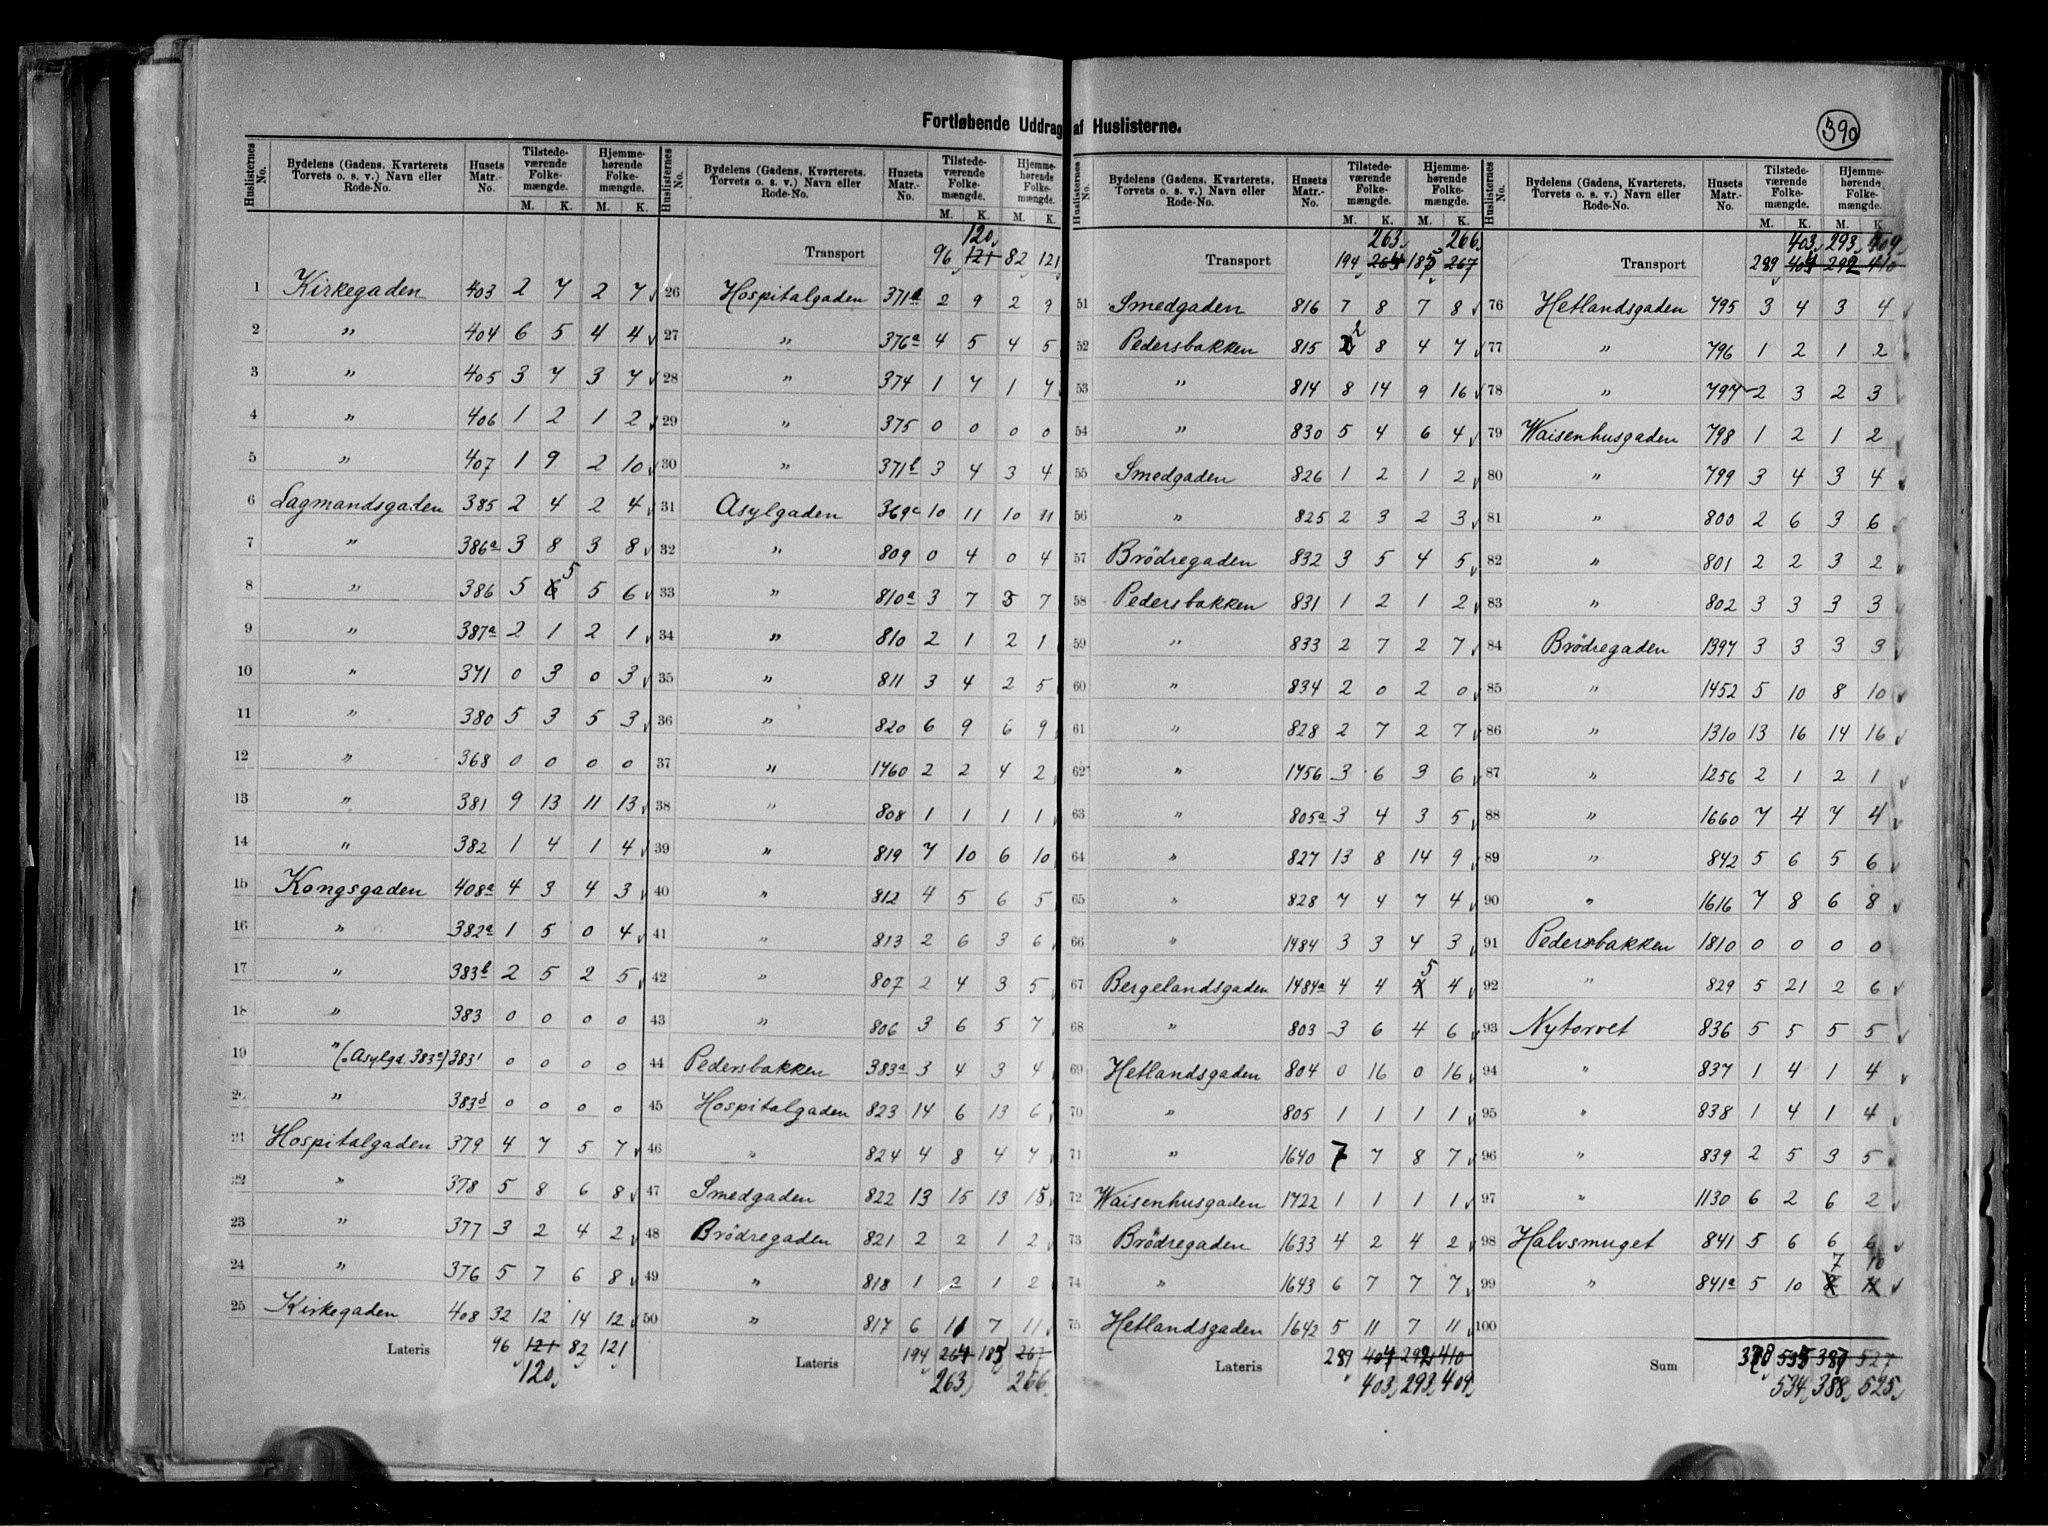 Fortløbende Uddrag af Huslisterne.
390
Huslisternes No. | Bydelens (Gadens, Kvarterets Torvets o. s. v.) Navn eller Rode-No. | Husets Matr.-No. | Tilstedeværende Folkemængde. M. K. | Hjemmehørende Folkemængde. M. K.
1 Kirkegaden 403 2 7 2 7
2 " 404 6 5 4 4
3 " 405 3 7 3 7
4 " 406 1 2 1 2
5 " 407 1 9 2 10
6 Lagmandsgaden 385 2 4 2 4
7 " 386a 3 8 3 8
8 " 386 5 5 5 6
9 " 387a 2 1 2 1
10 " 371 0 3 0 3
11 " 380 5 3 5 3
12 " 368 0 0 0 0
13 " 381 9 13 11 13
14 " 382 1 4 1 4
15 Kongsgaden 408a 4 3 4 3
16 " 382a 1 5 0 4
17 " 383b 2 5 2 5
18 " 383 0 0 0 0
19 " (Asylgd. 383a) 383' 0 0 0 0
20 " 383d 0 0 0 0
21 Hospitalgaden 379 4 7 5 7
22 " 378 5 8 6 8
23 " 377 3 2 4 2
24 " 376 5 7 6 8
25 Kirkegaden 408 32 12 14 12
Lateris 96 121 82 121
120
Huslisternes No. | Bydelens (Gadens, Kvarterets, Torvets o. s. v.) Navn eller Rode-No. | Husets Matr.-No. | Tilstedeværende Folkemængde. M. K. | Hjemmehørende Folkemængde. M. K.
120
Transport 96 121 82 121
26 Hospitalgaden 371a 2 9 2 9
27 " 376a 4 5 4 5
28 " 374 1 7 1 7
29 " 375 0 0 0 0
30 " 371b 3 4 3 4
31 Asylgaden 369c 10 11 10 11
32 " 809 0 4 0 4
33 " 810a 3 7 3 7
34 " 810 2 1 2 1
35 " 811 3 4 2 5
36 " 820 6 9 6 9
37 " 1460 2 2 4 2
38 " 808 1 1 1 1
39 " 819 7 10 6 10
40 " 812 4 5 6 5
41 " 813 2 6 3 6
42 " 807 2 4 3 5
43 " 806 3 6 5 7
44 Pedersbakken 383a 3 4 3 4
45 Hospitalgaden 823 14 6 13 6
46 " 824 4 8 4 7
47 Smedgaden 822 13 15 13 15
48 Brödregaden 821 2 2 1 2
49 " 818 1 2 1 2
50 " 817 6 11 7 11
Lateris 194 264 185 267
263 266
Huslisternes No. | Bydelens (Gadens, Kvarterets, Torvets o. s. v.) Navn eller Rode-No. | Husets Matr.-No. | Tilstedeværende Folkemængde. M. K. | Hjemmehørende Folkemængde. M. K.
263 5 266
Transport 194 264 185 267
51 Smedgaden 816 7 8 7 8
52 Pedersbakken 815 2 8 4 7
53 " 814 8 14 9 16
54 " 830 5 4 6 4
55 Smedgaden 826 1 2 1 2
56 " 825 2 3 2 3
57 Brödregaden 832 3 5 4 5
58 Pedersbakken 831 1 2 1 2
59 " 833 2 7 2 7
60 " 834 2 0 2 0
61 " 828 2 7 2 7
62 " 1456 3 6 3 6
63 " 805a 3 4 3 5
64 " 827 13 8 14 9
65 " 828 7 4 7 4
66 " 1484 3 3 4 3
67 Bergelandsgaden 1484a 4 4 5 4
68 " 803 3 6 4 6
69 Hetlandsgaden 804 0 16 0 16
70 " 805 1 1 1 1
71 " 1640 7 7 8 7
72 Waisenhusgaden 1722 1 1 1 1
73 Brödregaden 1633 4 2 4 2
74 " 1643 6 7 7 7
75 Hetlandsgaden 1642 5 11 7 11
Lateris 289 404 292 410
403 293 409
Huslisternes No. | Bydelens (Gadens, Kvarterets, Torvets o. s. v.) Navn eller Rode-No. | Husets Matr.-No. | Tilstedeværende Folkemængde. M. K. | Hjemmehørende Folkemængde. M. K.
403 293 409
Transport 289 404 292 410
76 Hetlandsgaden 795 3 4 3 4
77 " 796 1 2 1 2
78 " 797 2 3 2 3
79 Waisenhusgaden 798 1 2 1 2
80 " 799 3 4 3 4
81 " 800 2 6 3 6
82 " 801 2 2 3 2
83 " 802 3 3 3 3
84 Brödregaden 1397 3 3 3 3
85 " 1452 5 10 8 10
86 " 1310 13 16 14 16
87 " 1256 2 1 2 1
88 " 1660 7 4 7 4
89 " 842 5 6 5 6
90 " 1616 7 8 6 8
91 Pedersbakken 1810 0 0 0 0
92 " 829 5 21 2 6
93 Nytorvet 836 5 5 5 5
94 " 837 1 4 1 4
95 " 838 1 4 1 4
96 " 839 2 5 3 5
97 " 1130 6 2 6 2
98 Halvsmuget 841 5 6 6 6
99 " 841a 5 10 7 10
100
Sum 378 535 387 527
534 388 525